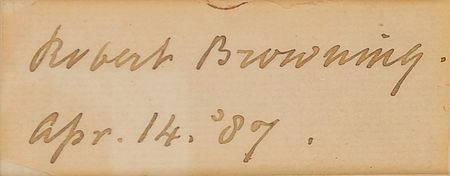 Robert Browning.
Apr. 14. '87.